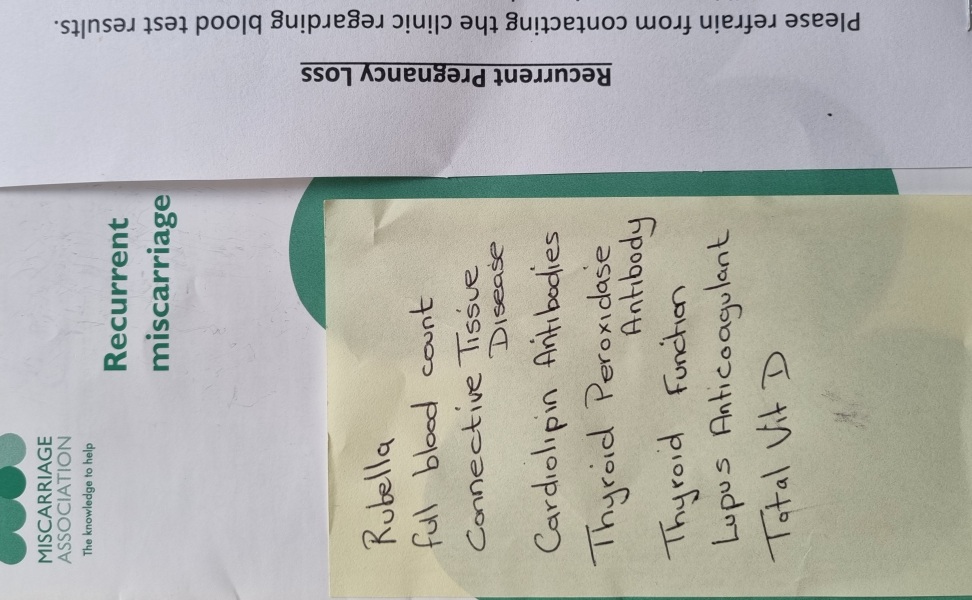 Please refrain from contacting the clinic regarding blood test results.
Recurrent Pregnancy Loss
MISCARRIAGE
ASSOCIATION
The knowledge to help
Recurrent
miscarriage
Rubella
full blood count
Connective Tissue
Disease
Cardiolipin Antibodies
Thyroid Peroxidase
Antibody
Thyroid Function
Lupus Anticoagulant
Total Vit D